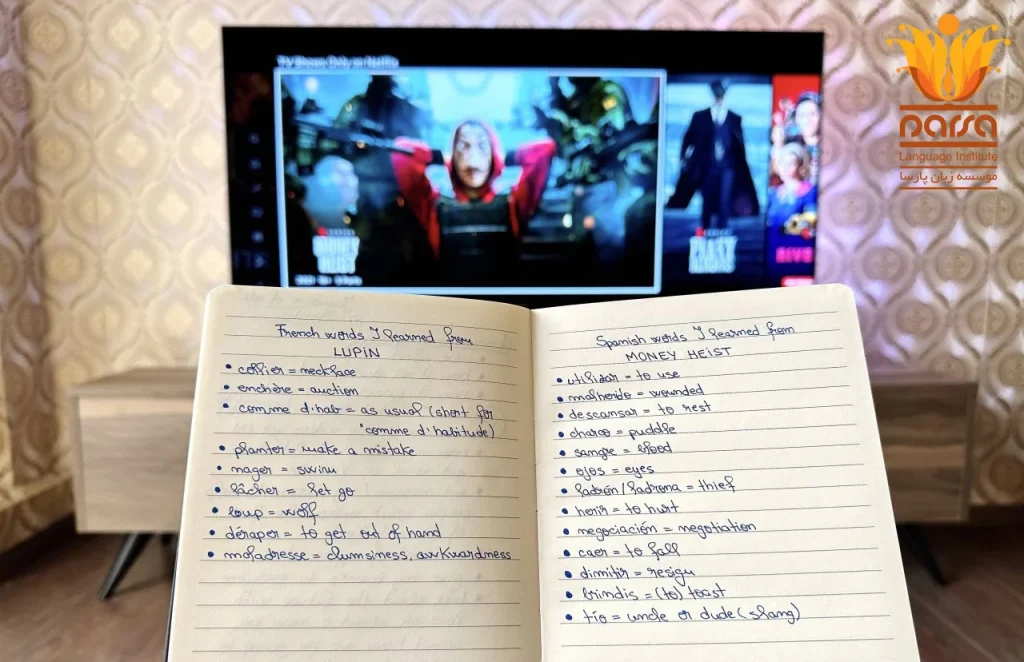 TV Shows Only on Netflix
MONEY
HEIST
PEAKY
BLINDERS
parsa
Language Institute
موسسه زبان پارسا
French words I learned from
LUPIN
• collier = necklace
• enchère = auction
• comme d'hab = as usual (short for
"comme d'habitude)
• planter = make a mistake
• nager = swim
• lâcher = let go
• loup = wolf
• déraper = to get out of hand
• maladresse = clumsiness, awkwardness
Spanish words I learned from
MONEY HEIST
• utilizar = to use
• malherido = wounded
• descansar = to rest
• charco = puddle
• sangre = blood
• ojos = eyes
• ladrón/ladrona = thief
• herir = to hurt
• negociación = negotiation
• caer = to fall
• dimitir = resign
• brindis = (to) toast
• tío = uncle or dude (slang)